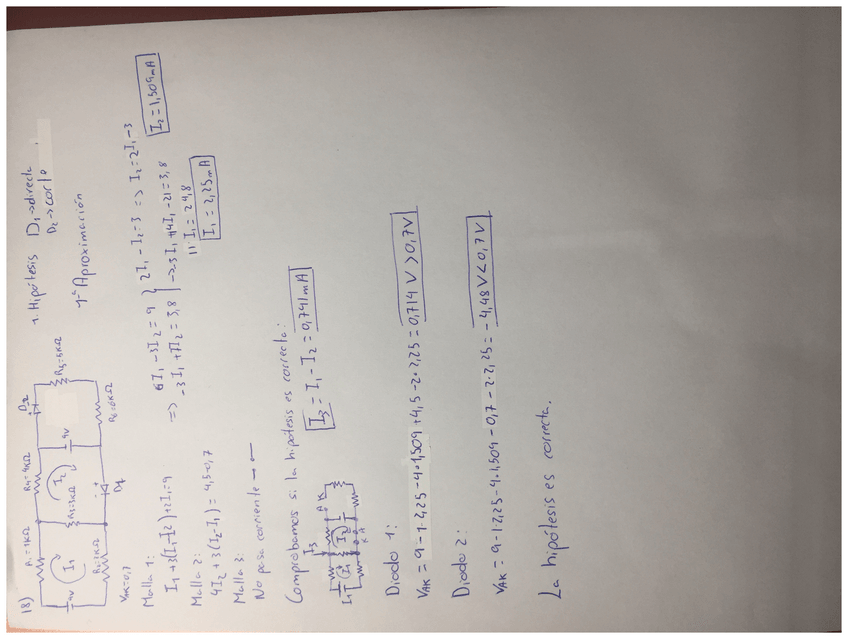 18)
R₁=1KΩ
R₄=4KΩ
D₂
R₅=5KΩ
9V
I₁
R₃=3KΩ
I₂
R₂=2KΩ
D₁
R₆=6KΩ
V_AK=0,7
1. Hipótesis D₁→directa
D₂→corte
1ª Aproximación
Malla 1:
I₁+3(I₁-I₂)+2I₁=9
Malla 2:
4I₂+3(I₂-I₁)=4,5-0,7
Malla 3:
No pasa corriente
=> 6I₁-3I₂=9 } 2I₁-I₂=3 => I₂=2I₁-3
-3I₁+7I₂=3,8 } -3I₁+14I₁-21=3,8
11I₁=24,8
I₁=2,25mA
I₂=1,509mA
Comprobamos si la hipótesis es correcta:
I₃
I₁
I₂
I₃=I₁-I₂=0,741mA
Diodo 1:
V_AK=9-1·2,25-4·1,509+4,5-2·2,25=0,714V>0,7V
Diodo 2:
V_AK=9-1·2,25-4·1,509-0,7-2·2,25=-4,48V<0,7V
La hipótesis es correcta.